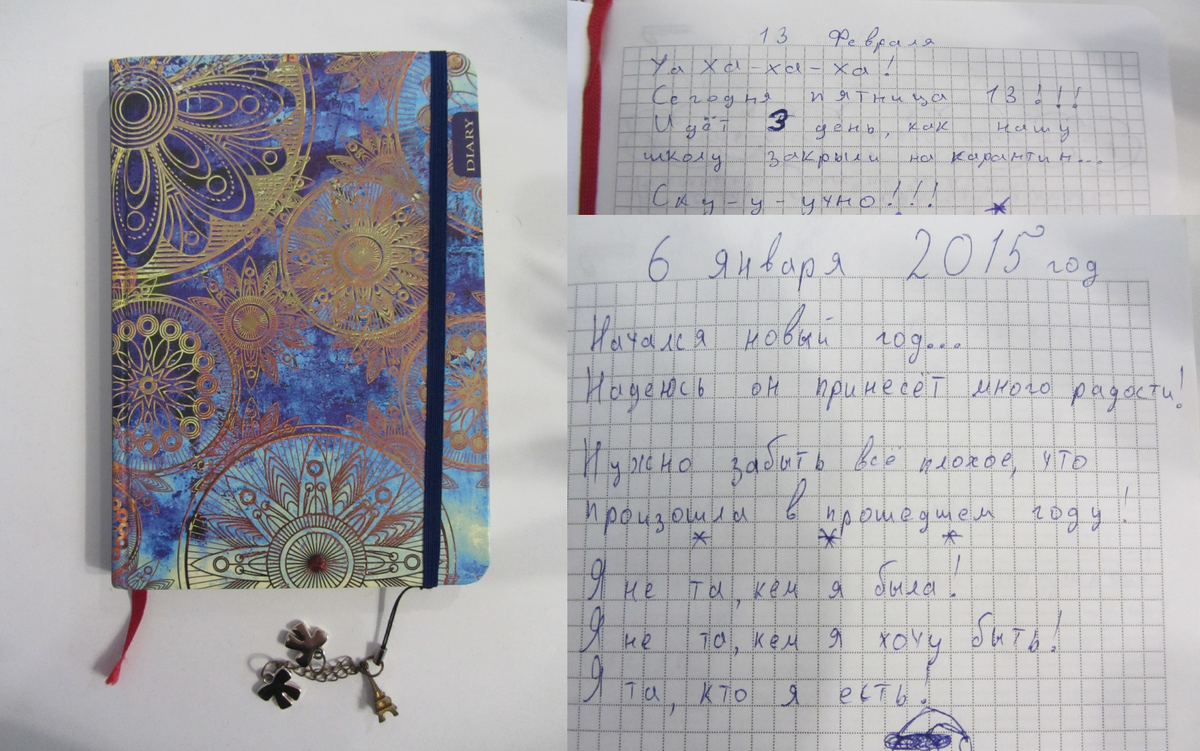 DIARY
13 Февраля
Уа ха-ха-ха!
Сегодня пятница 13!!!
Идёт 3 день, как нашу
школу закрыли на карантин...
Ску-у-учно!!!
6 января 2015 год
Начался новый год...
Надеюсь он принесёт много радости!
Нужно забыть всё плохое, что
произошла в прошедшем году!
Я не та, кем я была!
Я не та, кем я хочу быть!
Я та, кто я есть!